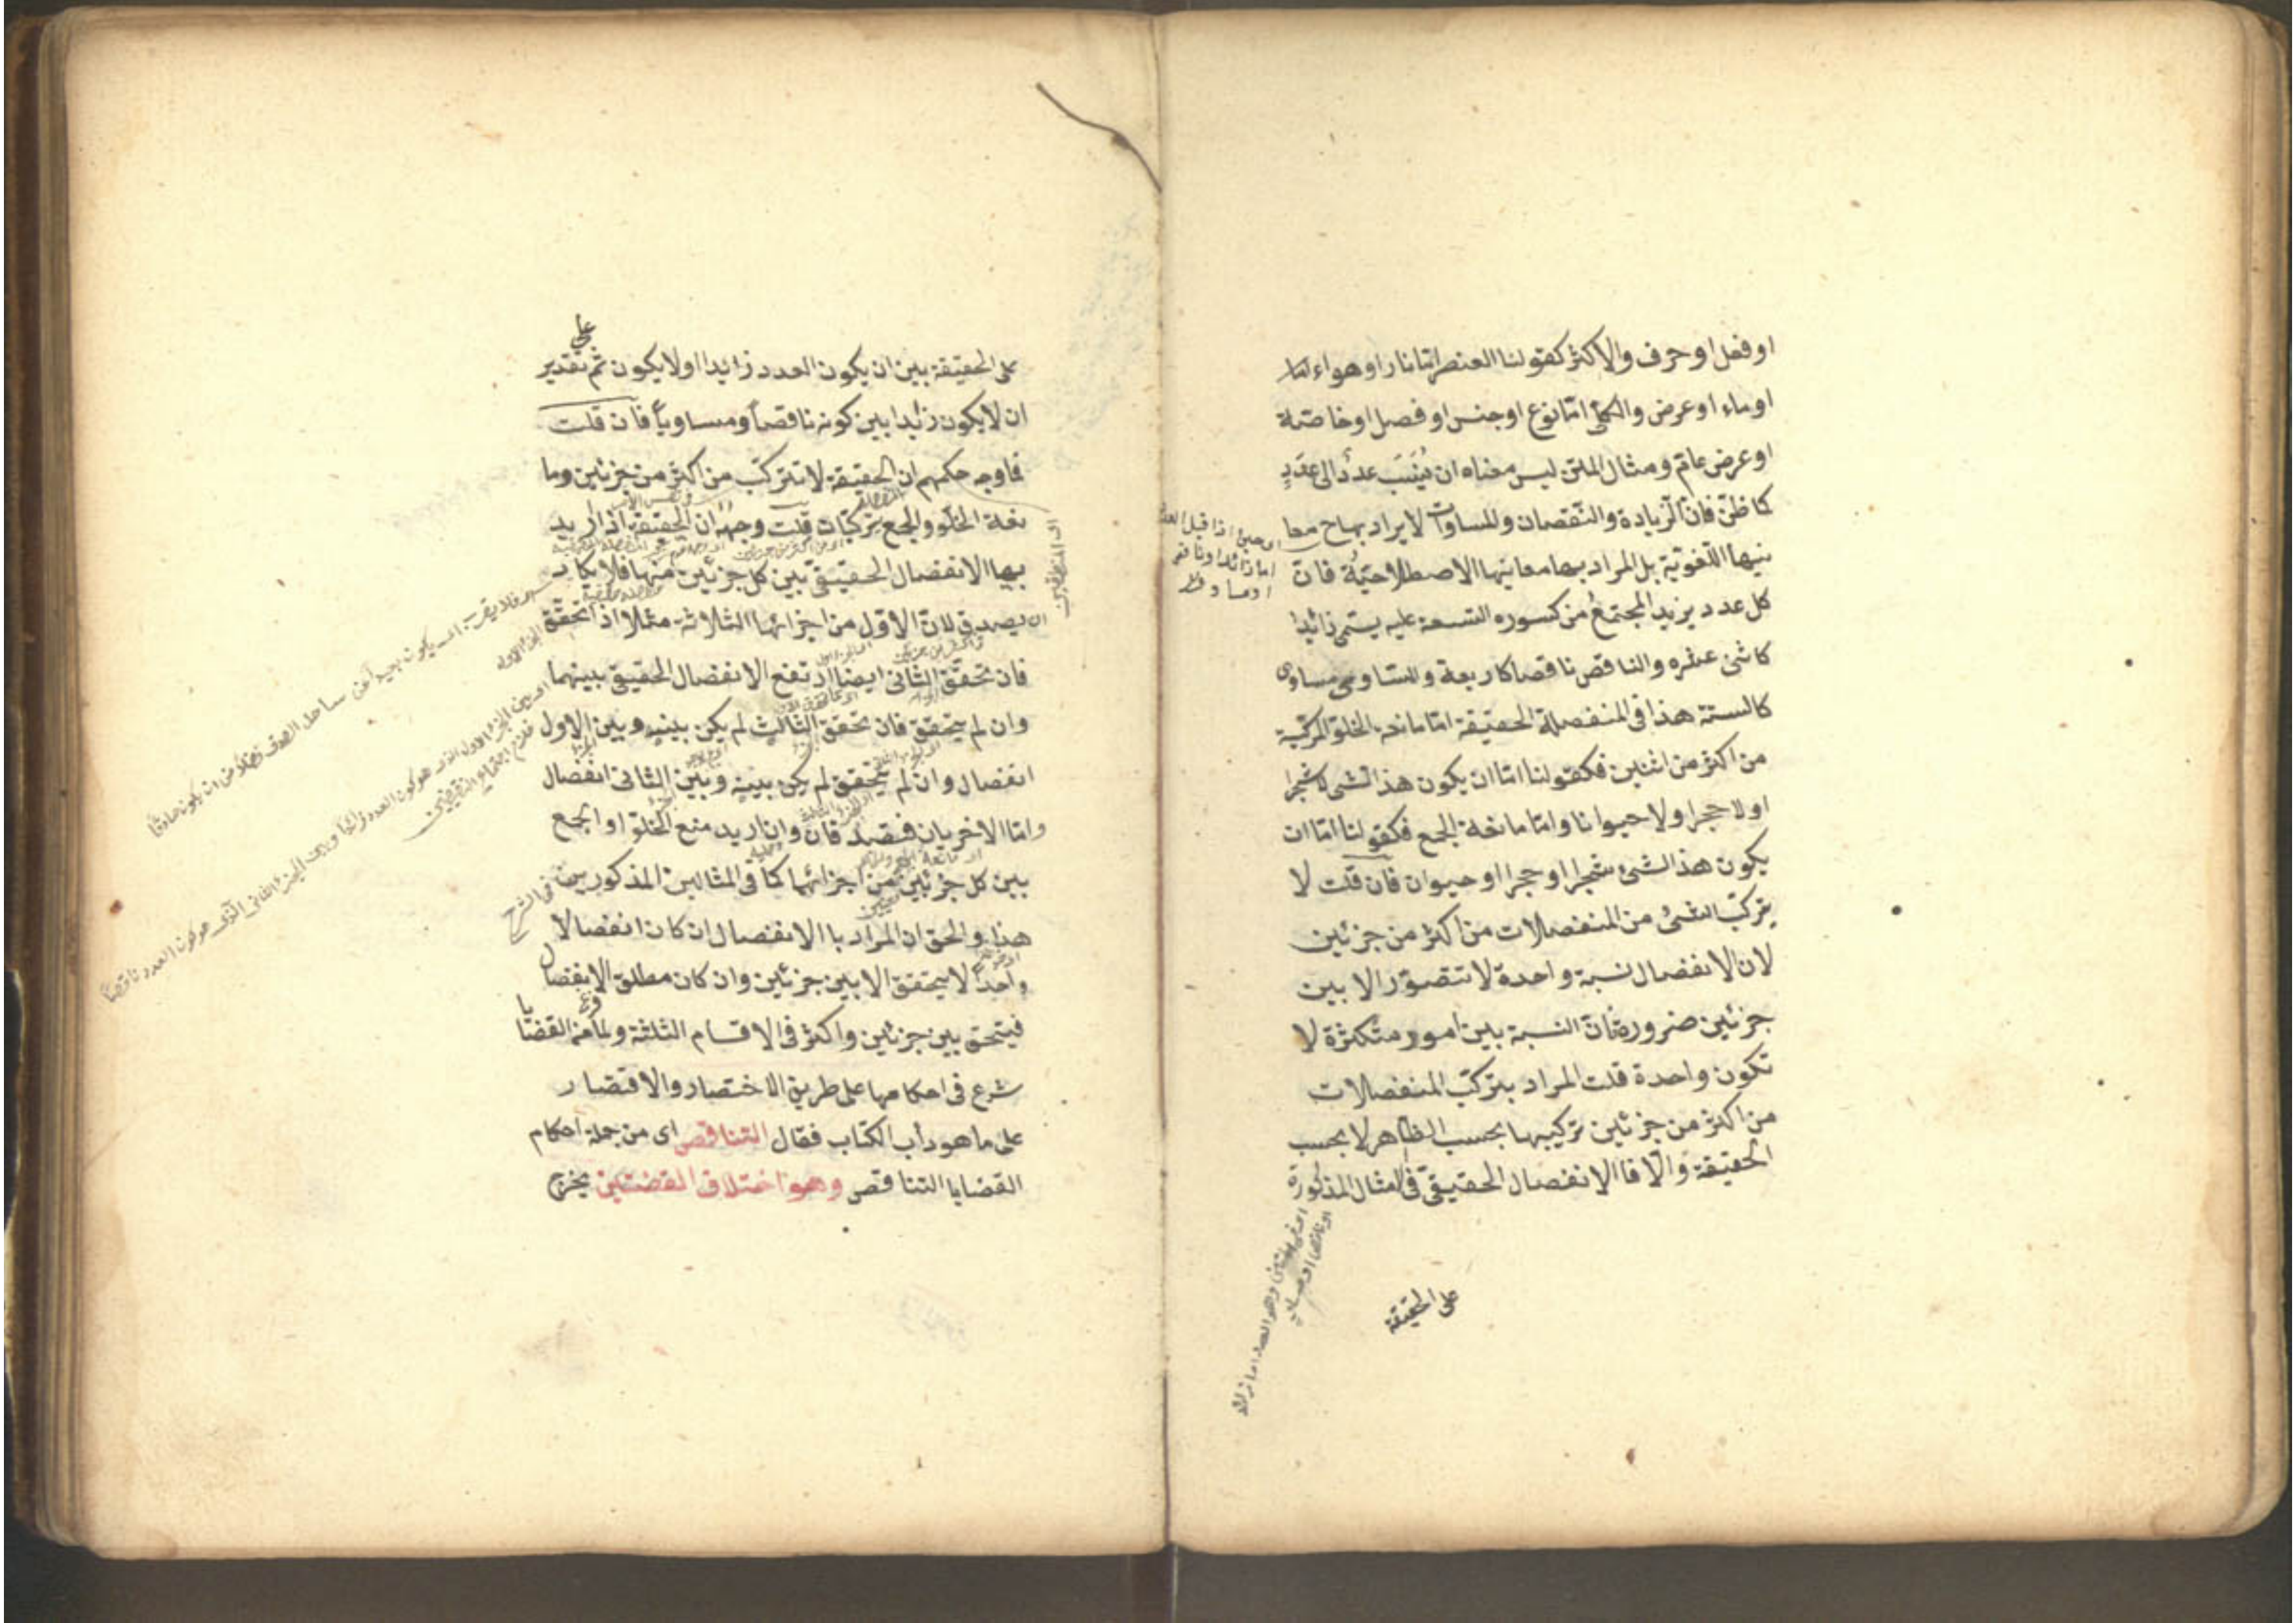 او فعل او حرف والاكثر كقولنا العنصر اما نار او هواء
او ماء او عرض والكلى اما نوع او جنس او فصل او خاصة
او عرض عام ومثال المتن ليس معناه ان يُنسَب عددٌ الى عددٍ
كما ظنّ فانّ الزيادة والنقصان والمساوات لا يراد بها ح معا
نيها اللّغويّة بل المراد بها معانيها الاصطلاحيّةُ فانّ
كل عدد يزيد المجتمعُ من كسوره التسعة عليه يسمّى زائدا
كاثنى عشره والناقص ناقصا كاربعة والمساوى مساوى
كالستة هذا فى المنفصلة الحقيقة امّا مانعة الخلوّ المركّبة
من اكثر من اثنين فكقولنا امّا ان يكون هذا الشىء لا شجرا
او لا حجرا ولا حيوانا وامّا مانعة الجمع فكقولنا امّا ان
يكون هذا الشىء شجرا او حجرا او حيوان فان قلت لا
يتركّب الشىء من المنفصلات من اكثر من جزئين
لان الانفصال نسبة واحدة لا تتصوّر الا بين
جزئين ضرورة فانّ النسبة بين امور متكثّرة لا
تكون واحدة قلت المراد بتركّب المنفصلات
من اكثر من جزئين تركيبها بحسب الظاهر لا بحسب
الحقيقة والّا فا الانفصال الحقيقىّ فى المثال المذكورة
على الحقيقة
اى حين اذا قيل العدد
اما زائد او ناقص
او مساو
على الحقيقة بين ان يكون العدد زائدا او لا يكون ثم تقدير
على
ان لا يكون زايدا بين كونه ناقصاً ومساوياً فان قلت
فما وجه حكمهم ان الحقيقة لا تتركّب من اكثر من جزئين وما
نعة الخلّو والجمع يتركّبات قلت وجهه ان الحقيقة اذا اريد
بها الانفصال الحقيقىّ بين كل جزئين منها فلا يكاد
ان يصدق لانّ الاوّل من اجزائها الثلاثة مثلا اذا تحقّق
فان تحقّق الثانى ايضا ارتفع الانفصال الحقيقىّ بينهما
وان لم يتحقق فان تحقق الثالث لم يكن بينه وبين الاول
انفصال وان لم يتحقق لم يكن بينه وبين الثانى انفصال
وامّا الاخريان فتصدقان وان اريد منع الخلوّ او الجمع
بين كل جزئين من اجزائها كما فى المثالين المذكورين
فى الشرح
هذا والحق ان المراد با الانفصال ان كان انفصالا
واحداً لا يتحقق الا بين جزئين وان كان مطلق الانفصال
فيتحقق بين جزئين واكثر فى الاقسام الثلثة ولما فرغ من القضايا
شرع فى احكامها على طريق الاختصار والاقتصار
على ما هو دأب الكتاب فقال التناقص اى من جملة احكام
القضايا التناقص وهو اختلاف القضيتين يخرج
اى بين الجزء الاول الذى هو كون العدد زائداً وبين الجزء الثانى الّذى هو كون العدد ناقصاً
فلزم اجتماع النقيضين